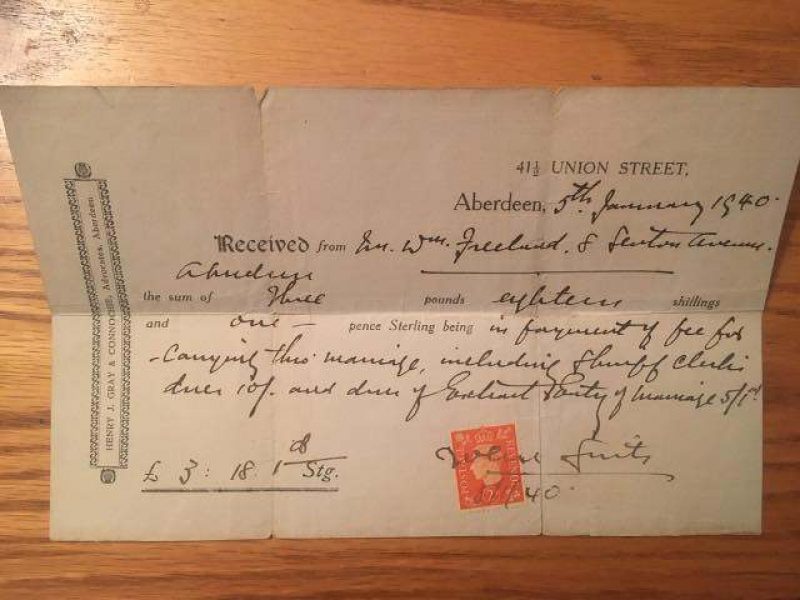 HENRY J. GRAY & CONNOCHIE, Advocates, Aberdeen
41½ UNION STREET,
Aberdeen, 5th January 1940.
Received from Mr. Wm. Freeland. 8 Avenue.
Aberdeen
the sum of Three pounds eighteen shillings
and one — pence Sterling being in payment of fee for
carrying thro marriage, including Sheriff Clerks
dues 10/. and dues of Extract Entry of marriage 5/1d
£ 3 : 18. 1d Stg.
POSTAGE REVENUE